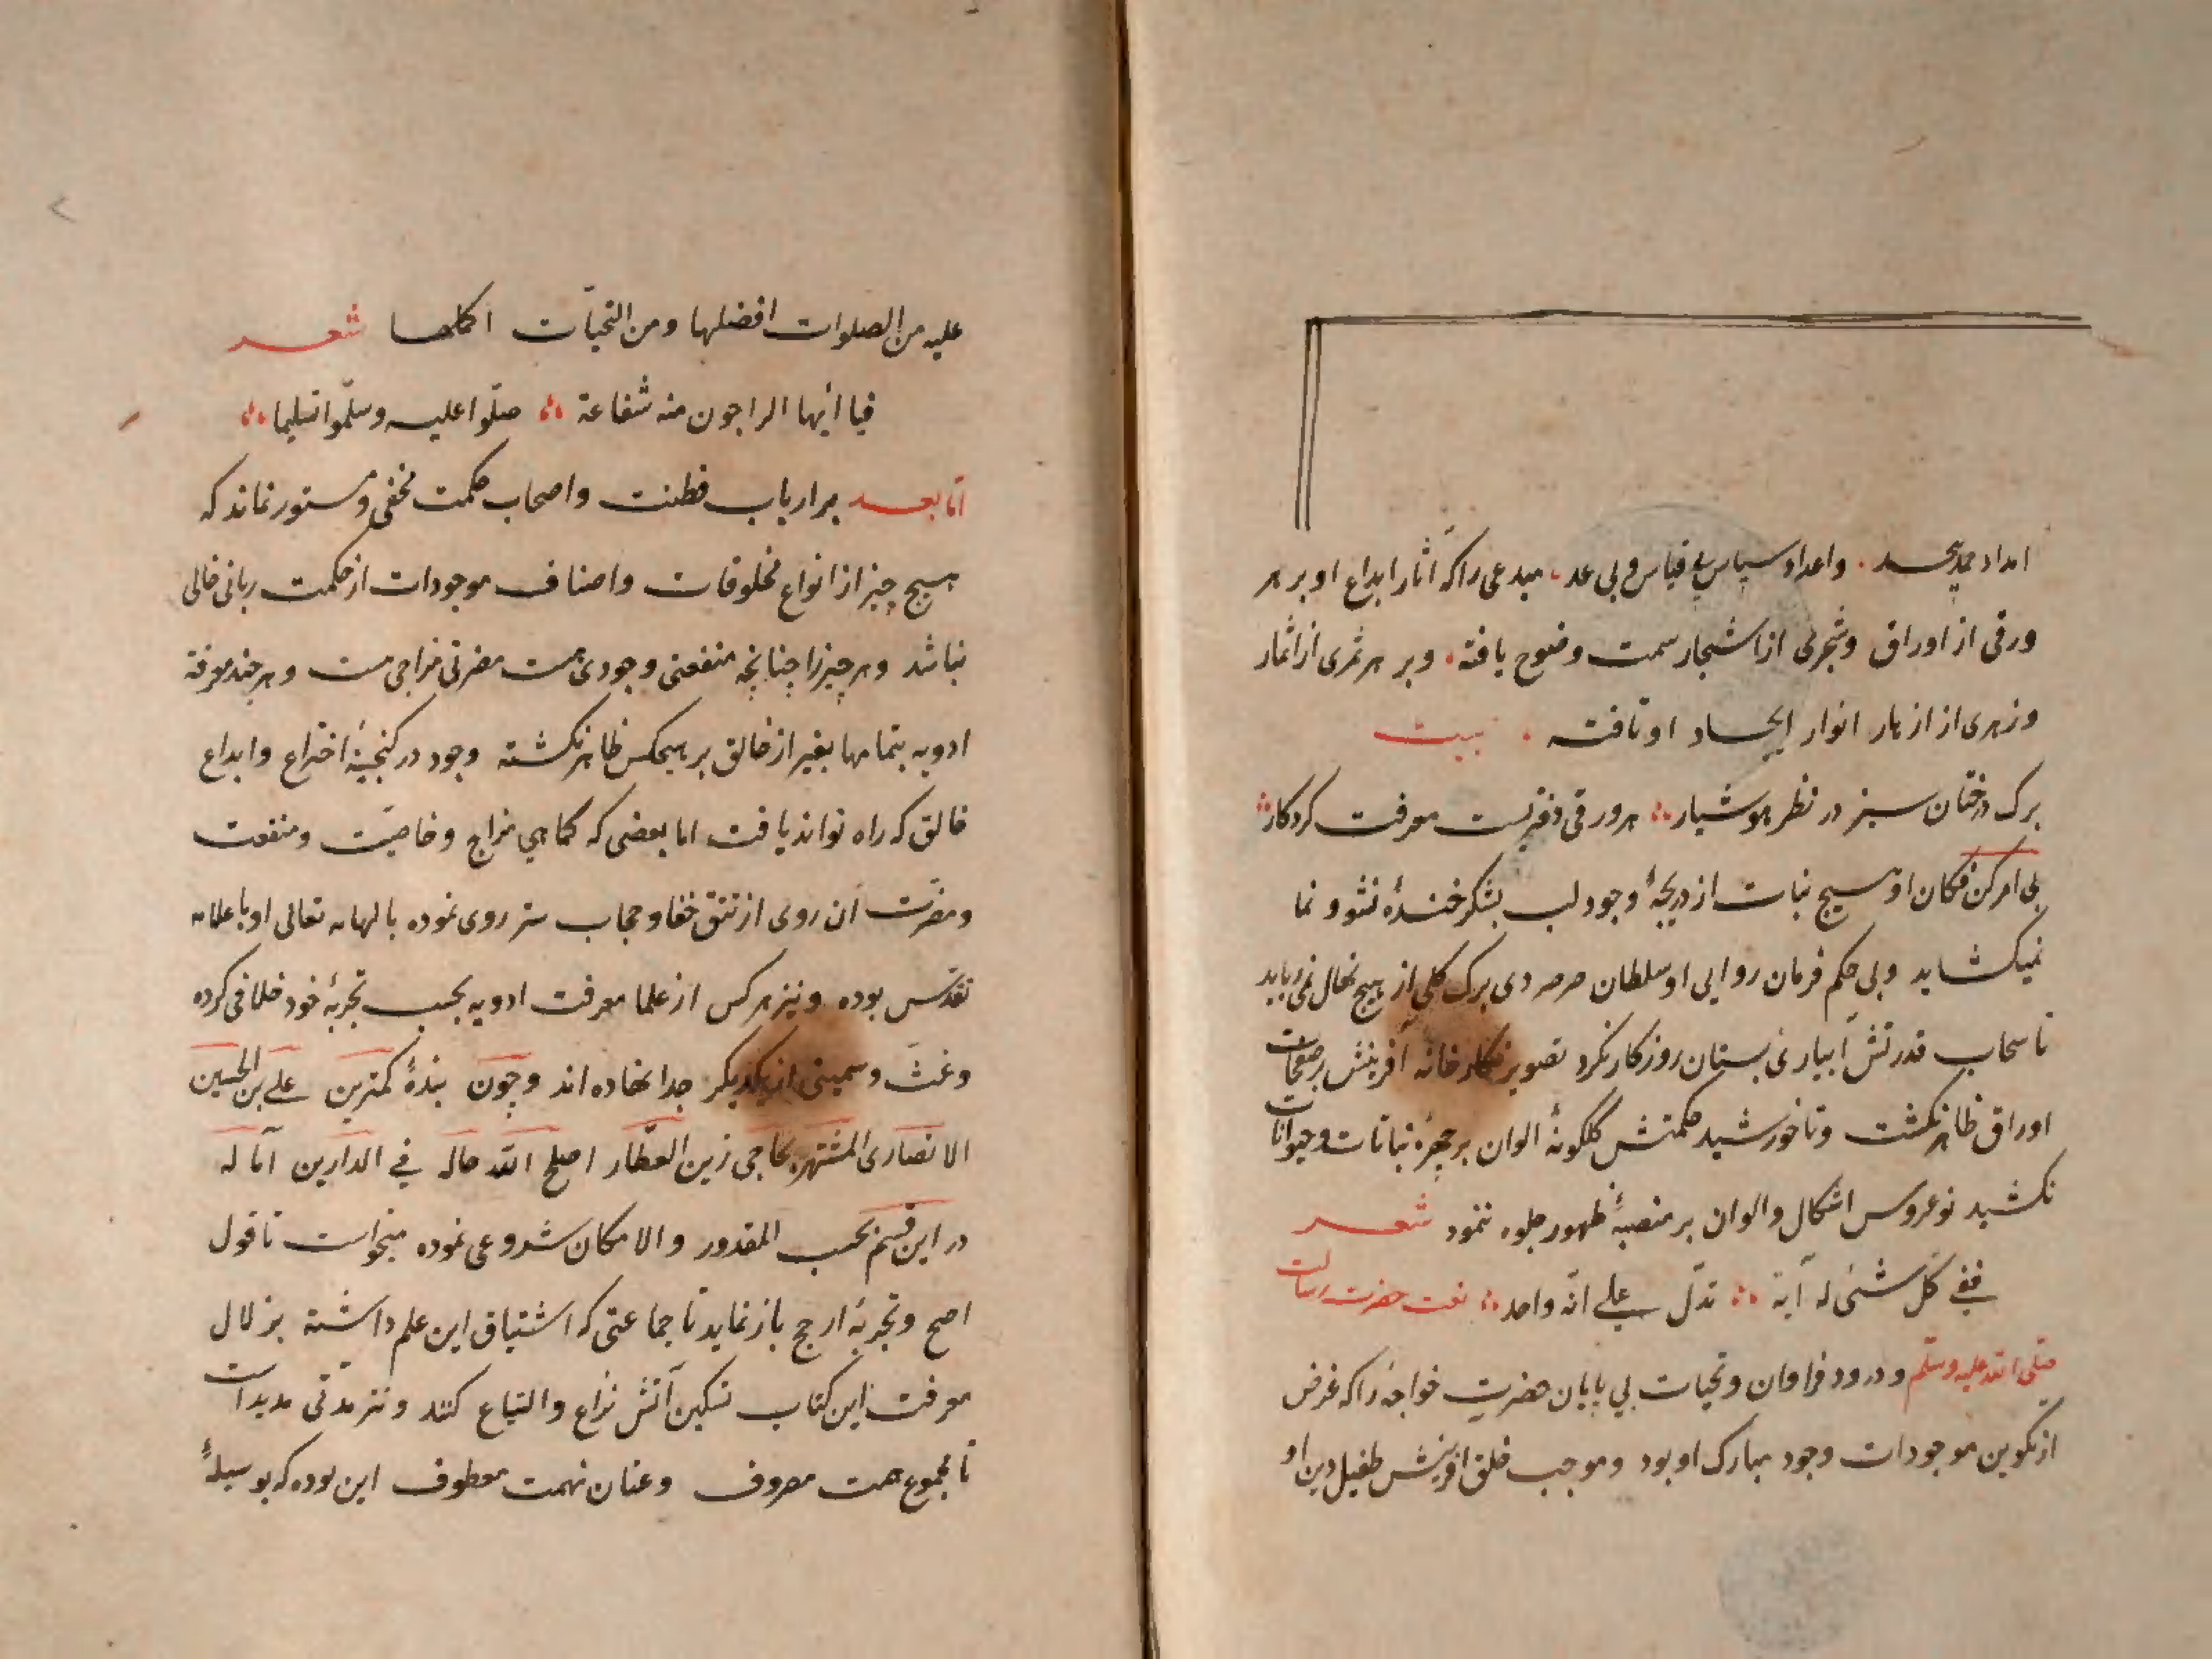 امداد حمد بیحد۰ واعداد سپاس بی قیاس و بی عد۰ مبدعی را که آثار ابداع او بر هر
ورقی از اوراق وشجری از اشجار سمت وضوح یافته۰ وبر هر ثمری از اثمار
وزهری از ازهار انوار ایجاد او تافته۰ بیت
برک درختان سبز در نظر هوشیار ∴ هر ورقی دفتریست معرفت کردکار ∴
بی امر کن فکان او هیچ نبات از دریچهٔ وجود لب بشکر خندهٔ نشو و نما
نمیکشاید وبی حکم فرمان روایی او سلطان صرصر دی برک کلی از هیچ نهال نمی رباید
تا سحاب قدرتش آبیاری بستان روزکار نکرد تصویر نکارخانه آفرینش بر صفحات
اوراق ظاهر نکشت وتا خورشید حکمتش کلکونهٔ الوان بر چهرهٔ نباتات وحیوانات
نکشید نوعروس اشکال والوان بر منصبهٔ ظهور جلوه ننمود شعر
ففی کل شئی له آیة ∴ تدل علی انه واحد ∴ نعت حضرت رسالت
صلی الله علیه وسلم ودرود فراوان وتحیات بی پایان حضرت خواجهٔ را که غرض
از تکوین موجودات وجود مبارک او بود وموجب خلق آفرینش طفیل دین او
علیه من الصلوات افضلها ومن التحیات اکملها شعر
فیا ایها الراجون منه شفاعة ∴ صلوا علیه وسلموا تسلیما ∴
اما بعد بر ارباب فطنت واصحاب حکمت مخفی و مستور نماند که
هیچ چیز از انواع مخلوقات واصناف موجودات از حکمت ربانی خالی
نباشد وهر چیز را چنانچه منفعتی وجودی هست مضرتی مزاجی هست وهر چند معرفة
ادویه بتمامها بغیر از خالق بر هیچکس ظاهر نکشته وجود در کنجینهٔ اختراع وابداع
خالق که راه تواند یافت اما بعضی که کماهی مزاج وخاصیت ومنفعت
ومضرت آن روی از تتق خفا وحجاب ستر روی نموده بالهام تعالی او باعلام
تقدس بوده ونیز هر کس از علما معرفت ادویه بحسب تجربهٔ خود خلافی کرده
وغث وسمینی از یکدیکر جدا نهاده اند وچون بندهٔ کمترین علی بن الحسین
الانصاری المشتهر بحاجی زین العطار اصلح الله حاله فی الدارین آماله
در این قسم بحسب المقدور والامکان شروعی نموده میخواست تا قول
اصح وتجربهٔ ارجح باز نماید تا جماعتی که اشتیاق این علم داشته بزلال
معرفت این کتاب تسکین آتش نزاع والتیاع کنند ونیز مدتی مدیدست
تا مجموع همت مصروف وعنان نهمت معطوف این بوده که بوسیلهٔ